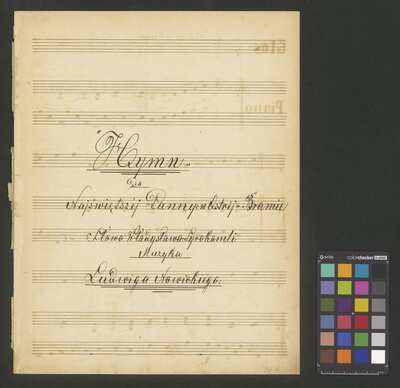 Głos
Piano
"Hymn"
Do
Najświętszej Panny w Ostrej-Bramie
Słowa Władysława Syrokomli
Muzyka
Ludwiga Nowickiego.
colorchecker